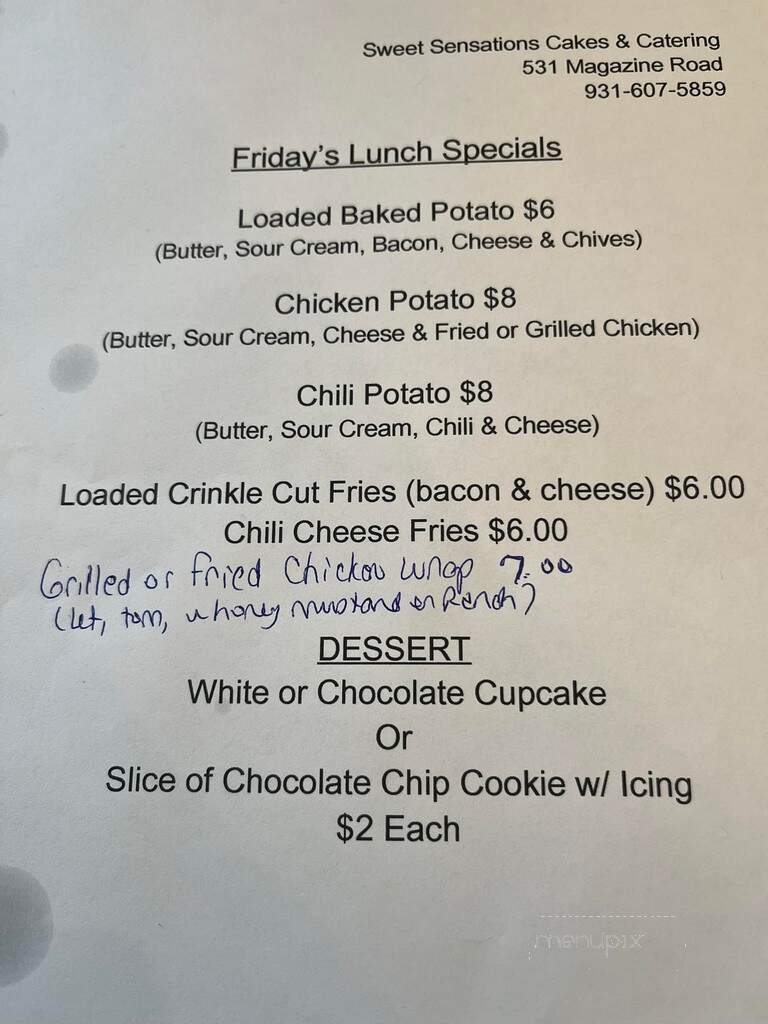 Sweet Sensations Cakes & Catering
531 Magazine Road
931-607-5859
Friday's Lunch Specials
Loaded Baked Potato $6
(Butter, Sour Cream, Bacon, Cheese & Chives)
Chicken Potato $8
(Butter, Sour Cream, Cheese & Fried or Grilled Chicken)
Chili Potato $8
(Butter, Sour Cream, Chili & Cheese)
Loaded Crinkle Cut Fries (bacon & cheese) $6.00
Chili Cheese Fries $6.00
Grilled or fried Chicken wrap 7.00
(Let, tom, w honey mustard or Ranch)
DESSERT
White or Chocolate Cupcake
Or
Slice of Chocolate Chip Cookie w/ Icing
$2 Each
menupix